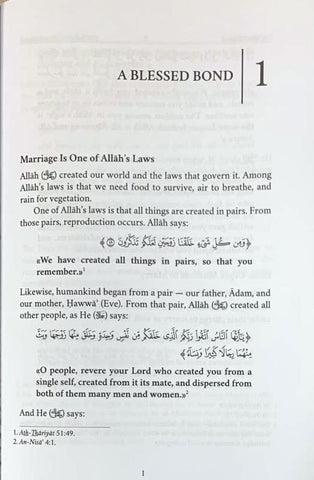 A BLESSED BOND
1
Marriage Is One of Allāh's Laws
Allāh (ﷻ) created our world and the laws that govern it. Among
Allāh's laws is that we need food to survive, air to breathe, and
rain for vegetation.
One of Allāh's laws is that all things are created in pairs. From
those pairs, reproduction occurs. Allāh says:
﴿وَمِن كُلِّ شَيْءٍ خَلَقْنَا زَوْجَيْنِ لَعَلَّكُمْ تَذَكَّرُونَ ۝﴾
«We have created all things in pairs, so that you
remember.»¹
Likewise, humankind began from a pair — our father, Ādam, and
our mother, Ḥawwā' (Eve). From that pair, Allāh (ﷻ) created all
other people, as He (ﷻ) says:
﴿يَٰٓأَيُّهَا ٱلنَّاسُ ٱتَّقُوا۟ رَبَّكُمُ ٱلَّذِى خَلَقَكُم مِّن نَّفْسٍ وَٰحِدَةٍ وَخَلَقَ مِنْهَا زَوْجَهَا وَبَثَّ
مِنْهُمَا رِجَالًا كَثِيرًا وَنِسَآءً﴾
«O people, revere your Lord who created you from a
single self, created from it its mate, and dispersed from
both of them many men and women.»²
And He (ﷻ) says:
1. Ath-Thāriyat 51:49.
2. An-Nisā' 4:1.
1